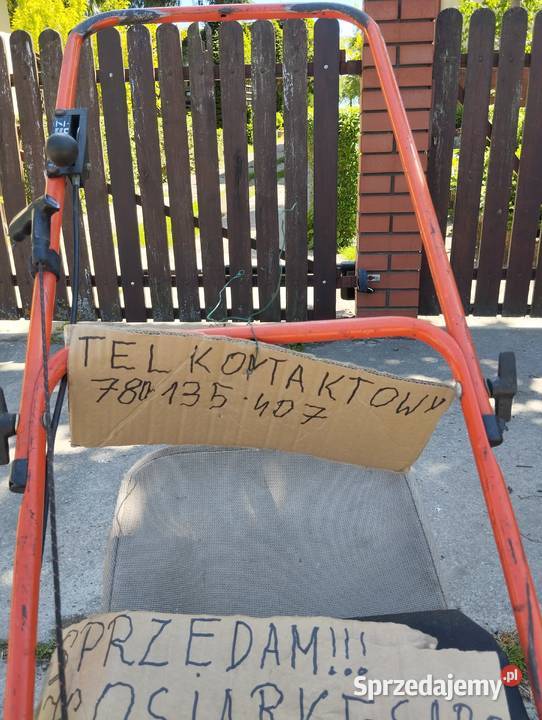 TEL KONTAKTOWY
780·135·407
SPRZEDAM!!!
KOSIARKĘ
Sprzedajemy.pl